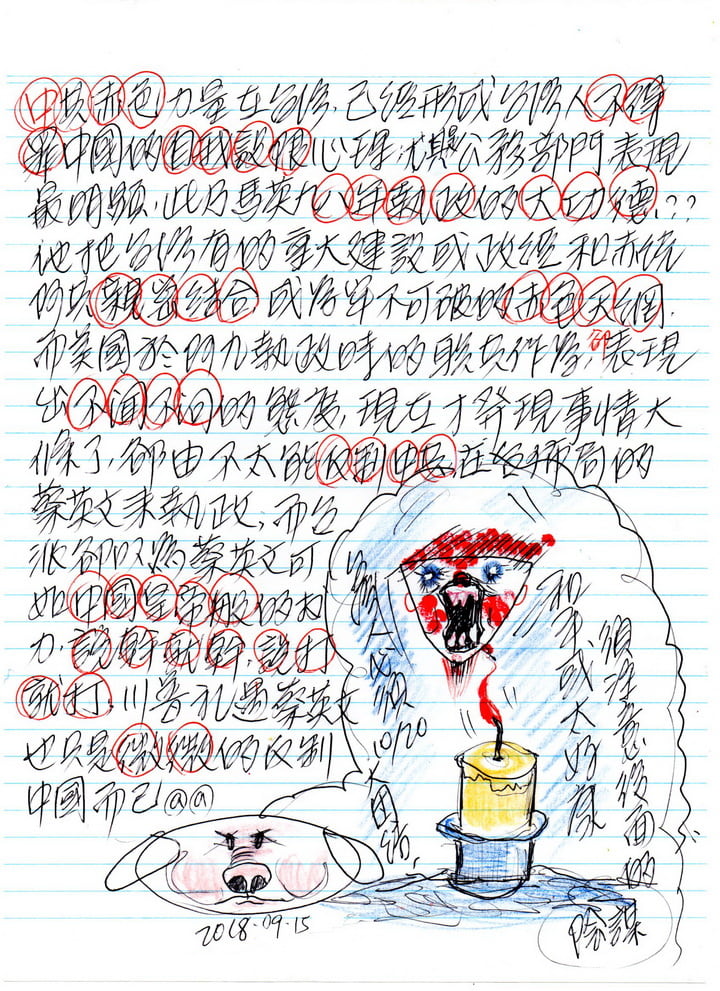 中共赤色力量在台灣,已經形成台灣人不得
罪中國的自我設限心理,尤其公務部門表現
最明顯,此乃馬英九八年執政的大功德,??
他把台灣有的重大建設或政經和赤統
的共親密結合成為牢不可破的赤色天網,
而美國於阿九執政時的聯共作為,卻表現
出不聞不問的態度,現在才發現事情大
條了,卻由不太能反制中共在台布局的
蔡英文來執政,而台
派卻以為蔡英文可
如中國皇帝般的权
力,說幹就幹,說打
就打,川普礼遇蔡英文
也只是微微的反制
中國而已@@
台灣人必須10/20大团結,
和平或大好家
須注意後面的
陰謀
2018.09.15